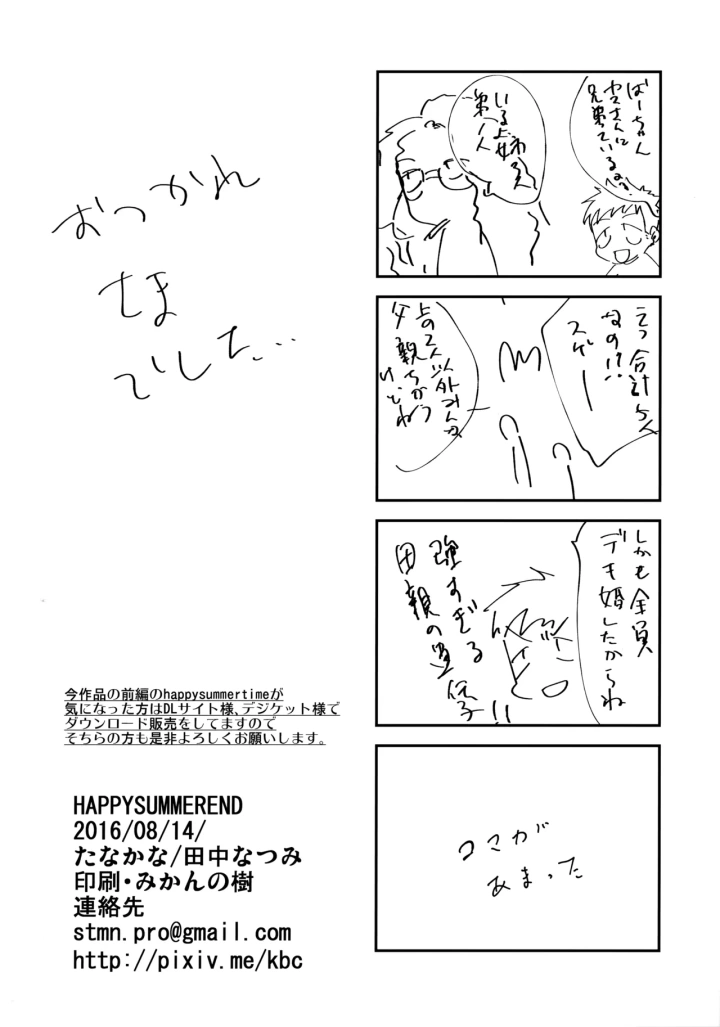 ばーちゃん
母さんに
兄弟ている
いるよ姉3人
弟1人
えっ合計5人
なの!?
スゲー
上の2人以外みんな
父親ちがう
けどね
しかも全員
デキ婚したからね
強すぎる
母親の遺伝子!!
コマが
あまった
おつかれ
さま
でした...
今作品の前編のhappysummertimeが
気になった方はDLサイト様、デジケット様で
ダウンロード販売をしてますので
そちらの方も是非よろしくお願いします。
HAPPYSUMMEREND
2016/08/14/
たなかな/田中なつみ
印刷・みかんの樹
連絡先
stmn.pro@gmail.com
http://pixiv.me/kbc